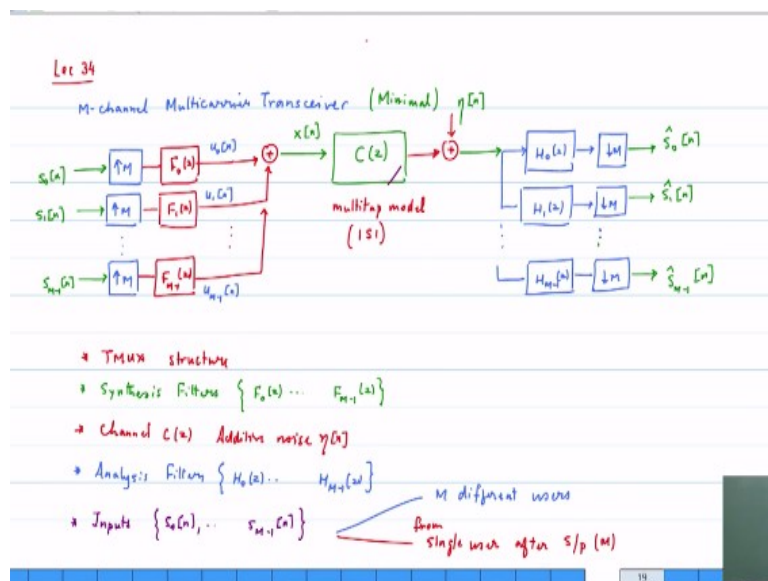 Lec 34
M-channel Multicarrier Transceiver (Minimal)
η[n]
x[n]
S₀[n] ↑M F₀(z) u₀[n] + C(z) + H₀(z) ↓M Ŝ₀[n]
S₁[n] ↑M F₁(z) u₁[n] H₁(z) ↓M Ŝ₁[n]
multitap model
(ISI)
S_M-1[n] ↑M F_M-1(z) u_M-1[n] H_M-1(z) ↓M Ŝ_M-1[n]
* TMUX structure
* Synthesis Filters { F₀(z) ... F_M-1(z) }
* Channel C(z) Additive noise η[n]
* Analysis Filters { H₀(z) .. H_M-1(z) }
* Inputs { S₀[n], .. S_M-1[n] }
M different users
from
single user after S/P (M)
14